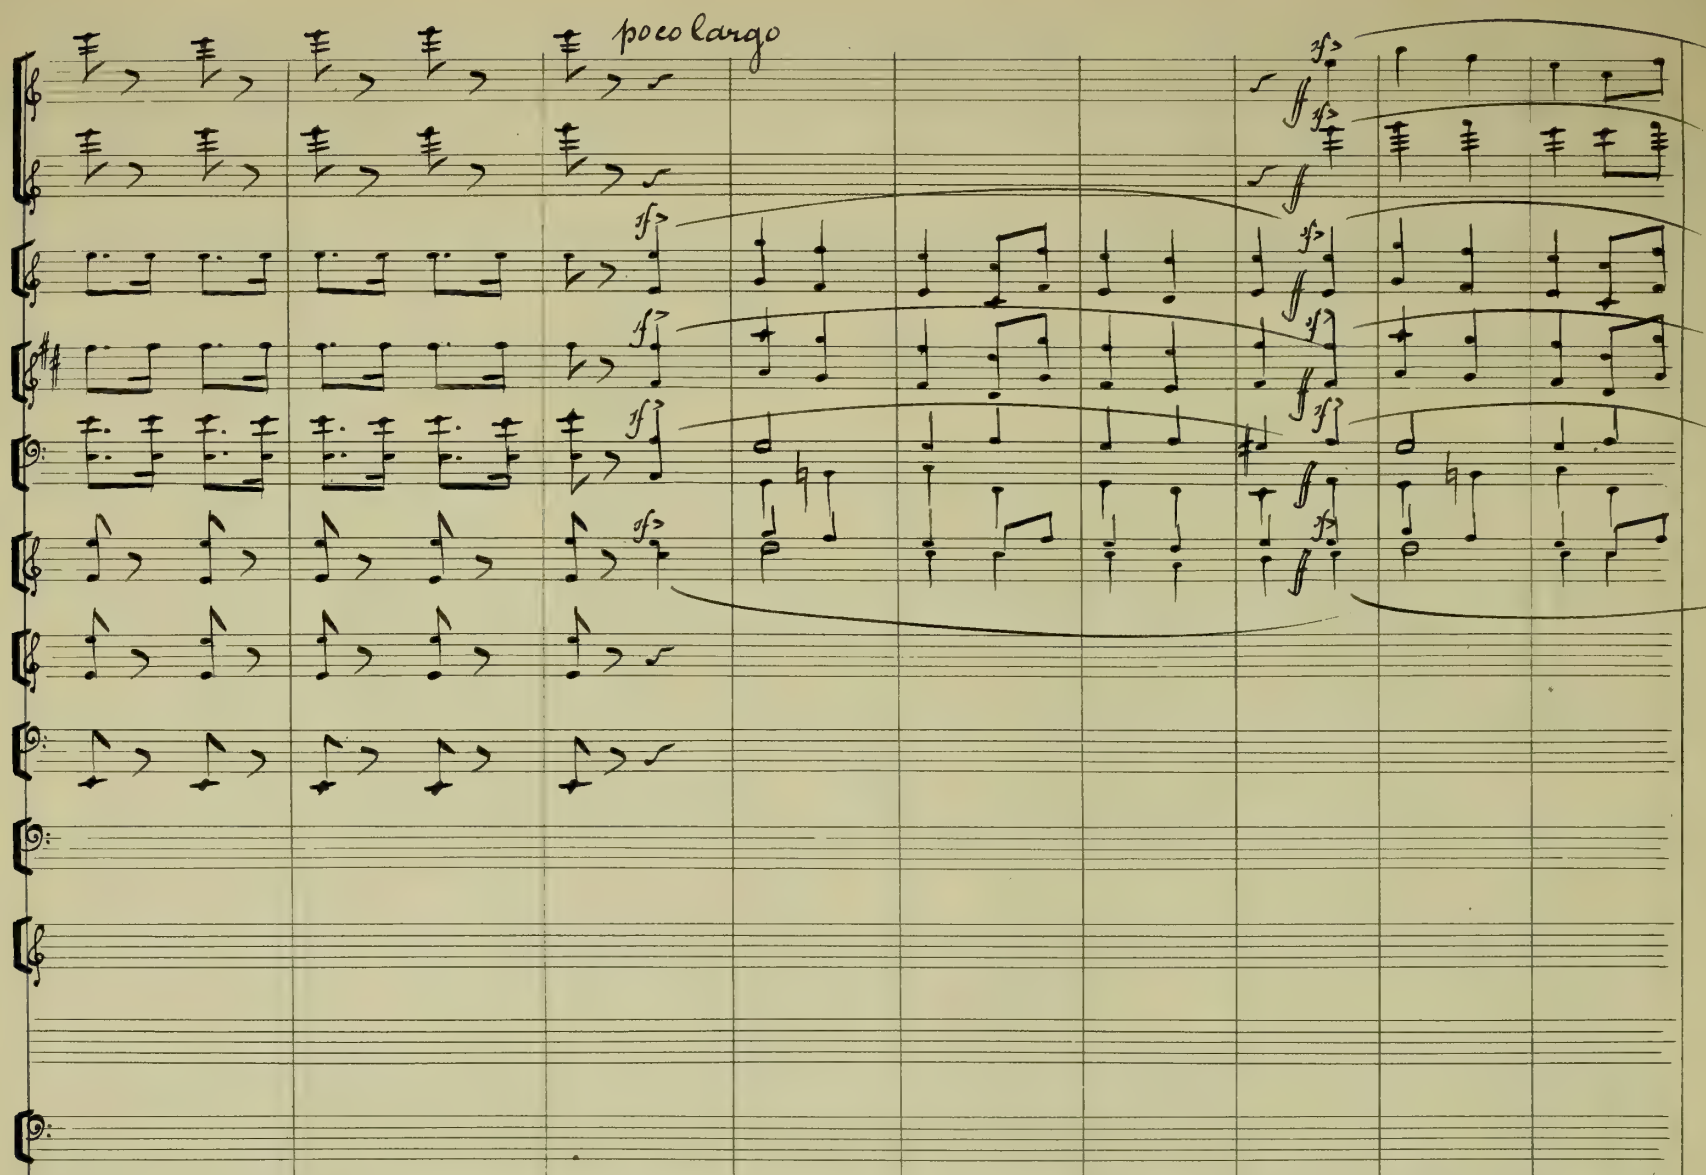 poco largo
sf>
ff
sf>
ff
sf>
sf>
ff
sf>
sf>
ff
sf>
sf>
ff
sf>
sf>
ff